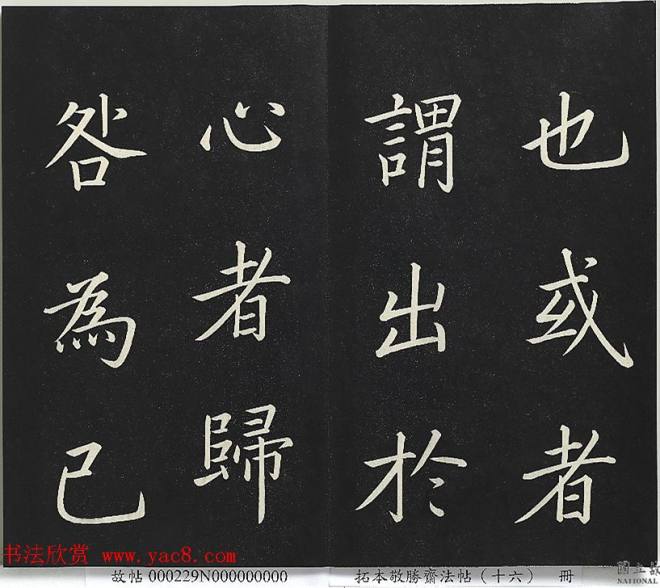 也或者
謂出於
心者歸
咎為己
书法欣赏 www.yac8.com
故帖 000229N000000000
拓本敬勝齋法帖（十六） 冊
國立故
NATIONAL